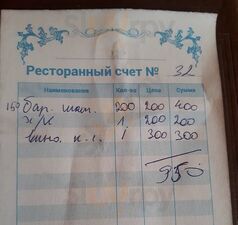 Ресторанный счет № 32
Наименование Кол-во Цена Сумма
150 бар. шаш. 200 200 400
х/к 1 200 200
вино к.с. 1 300 300
950